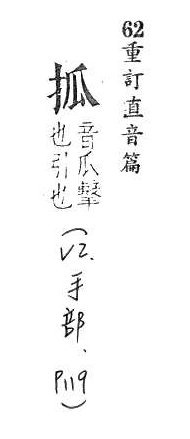 62重訂直音篇
抓
音瓜擊
也引也
(V2.手部、P119)